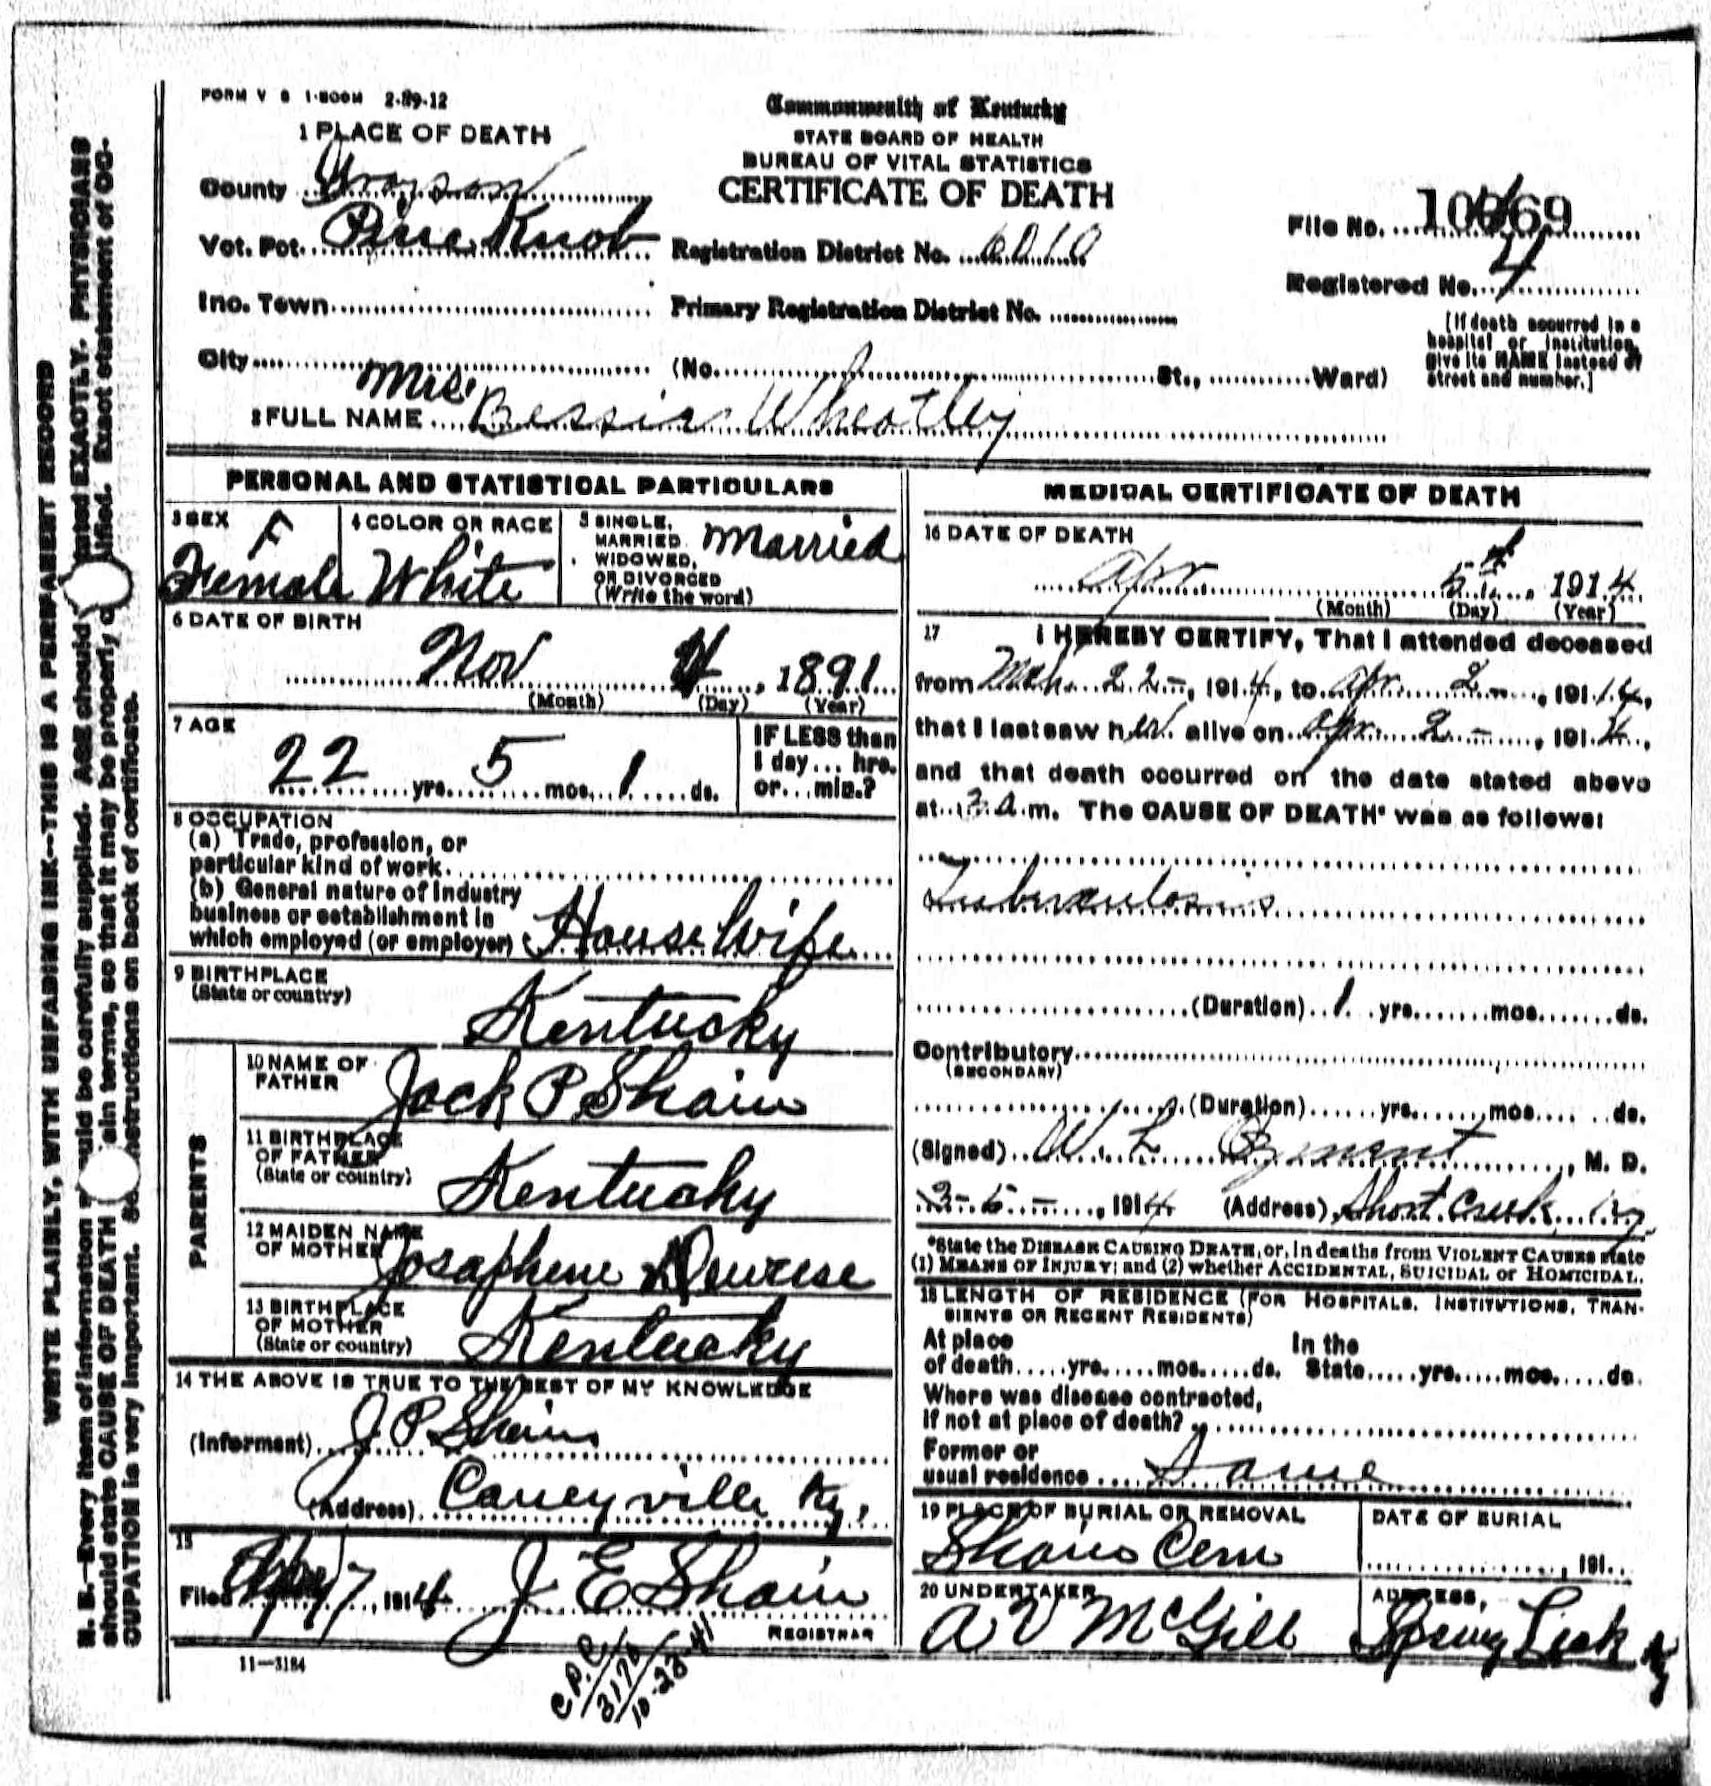 FORM V S 1-500M 2-29-12
Commonwealth of Kentucky
STATE BOARD OF HEALTH
BUREAU OF VITAL STATISTICS
CERTIFICATE OF DEATH
1 PLACE OF DEATH
County Grayson
Vot. Pct. Pine Knob
Registration District No. 6010
File No. 10469
Inc. Town
Primary Registration District No.
Registered No. 4
City
(No. St., Ward)
[If death occurred in a
hospital or institution,
give its NAME instead of
street and number.]
2 FULL NAME Mrs. Bessie Wheatley
PERSONAL AND STATISTICAL PARTICULARS
3 SEX F
Female
4 COLOR OR RACE
White
5 SINGLE,
MARRIED,
WIDOWED,
OR DIVORCED
(Write the word)
Married
6 DATE OF BIRTH
Nov 4, 1891
(Month) (Day) (Year)
7 AGE
22 yrs. 5 mos. 1 ds.
IF LESS than
1 day... hrs.
or... min.?
8 OCCUPATION
(a) Trade, profession, or
particular kind of work
(b) General nature of industry
business or establishment in
which employed (or employer) House Wife
9 BIRTHPLACE
(State or country)
Kentucky
PARENTS
10 NAME OF
FATHER
Jack P. Shain
11 BIRTHPLACE
OF FATHER
(State or country)
Kentucky
12 MAIDEN NAME
OF MOTHER
Josaphene Deweese
13 BIRTHPLACE
OF MOTHER
(State or country)
Kentucky
14 THE ABOVE IS TRUE TO THE BEST OF MY KNOWLEDGE
(Informant) J P Shain
(Address) Caneyville Ky.
15
Filed 7, 1914 J E Shain
REGISTRAR
11-3184
C.P.C.
3170
10-23-41
MEDICAL CERTIFICATE OF DEATH
16 DATE OF DEATH
Apr 5th, 1914
(Month) (Day) (Year)
17 I HEREBY CERTIFY, That I attended deceased
from Mch. 22-, 1914, to Apr 2, 1914,
that I last saw her alive on Apr 2-, 1914,
and that death occurred on the date stated above
at 3 a.m. The CAUSE OF DEATH* was as follows:
Tuberculosis
(Duration) 1 yrs. mos. ds.
Contributory
(SECONDARY)
(Duration) yrs. mos. ds.
(Signed) W. L. Ozment, M. D.
1914 (Address) Short Creek Ky.
*State the DISEASE CAUSING DEATH, or, in deaths from VIOLENT CAUSES state
(1) MEANS OF INJURY; and (2) whether ACCIDENTAL, SUICIDAL or HOMICIDAL.
18 LENGTH OF RESIDENCE (FOR HOSPITALS, INSTITUTIONS, TRAN-
SIENTS OR RECENT RESIDENTS)
At place
of death yrs. mos. ds.
In the
State yrs. mos. ds.
Where was disease contracted,
if not at place of death?
Former or
usual residence Same
19 PLACE OF BURIAL OR REMOVAL
Shain Cem
DATE OF BURIAL
191
20 UNDERTAKER
A V McGill
ADDRESS,
Spring Lick Ky
WRITE PLAINLY, WITH UNFADING INK—THIS IS A PERMANENT RECORD
N. B.—Every item of information should be carefully supplied. AGE should stated EXACTLY. PHYSICIANS
should state CAUSE OF DEATH plain terms, so that it may be properly classified. Exact statement of OC-
CUPATION is very important. See instructions on back of certificate.